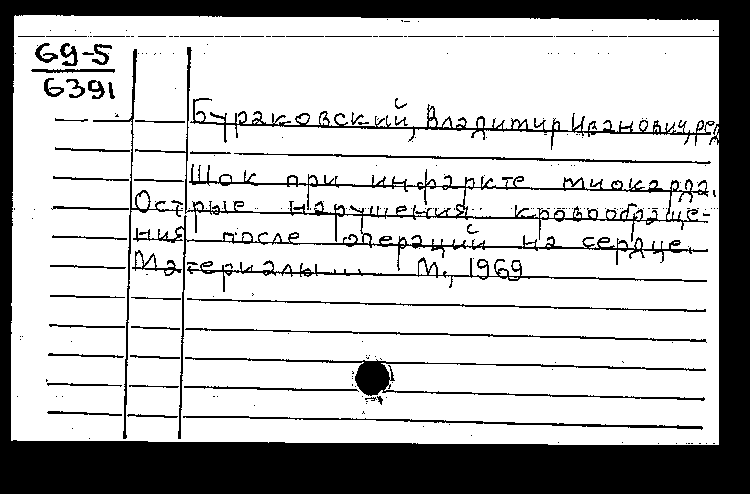 69-5
6391
Бураковский, Владимир Иванович, ред
Шок при инфаркте миокарда.
Острые нарушения кровообраще-
ния после операций на сердце.
Материалы... М., 1969